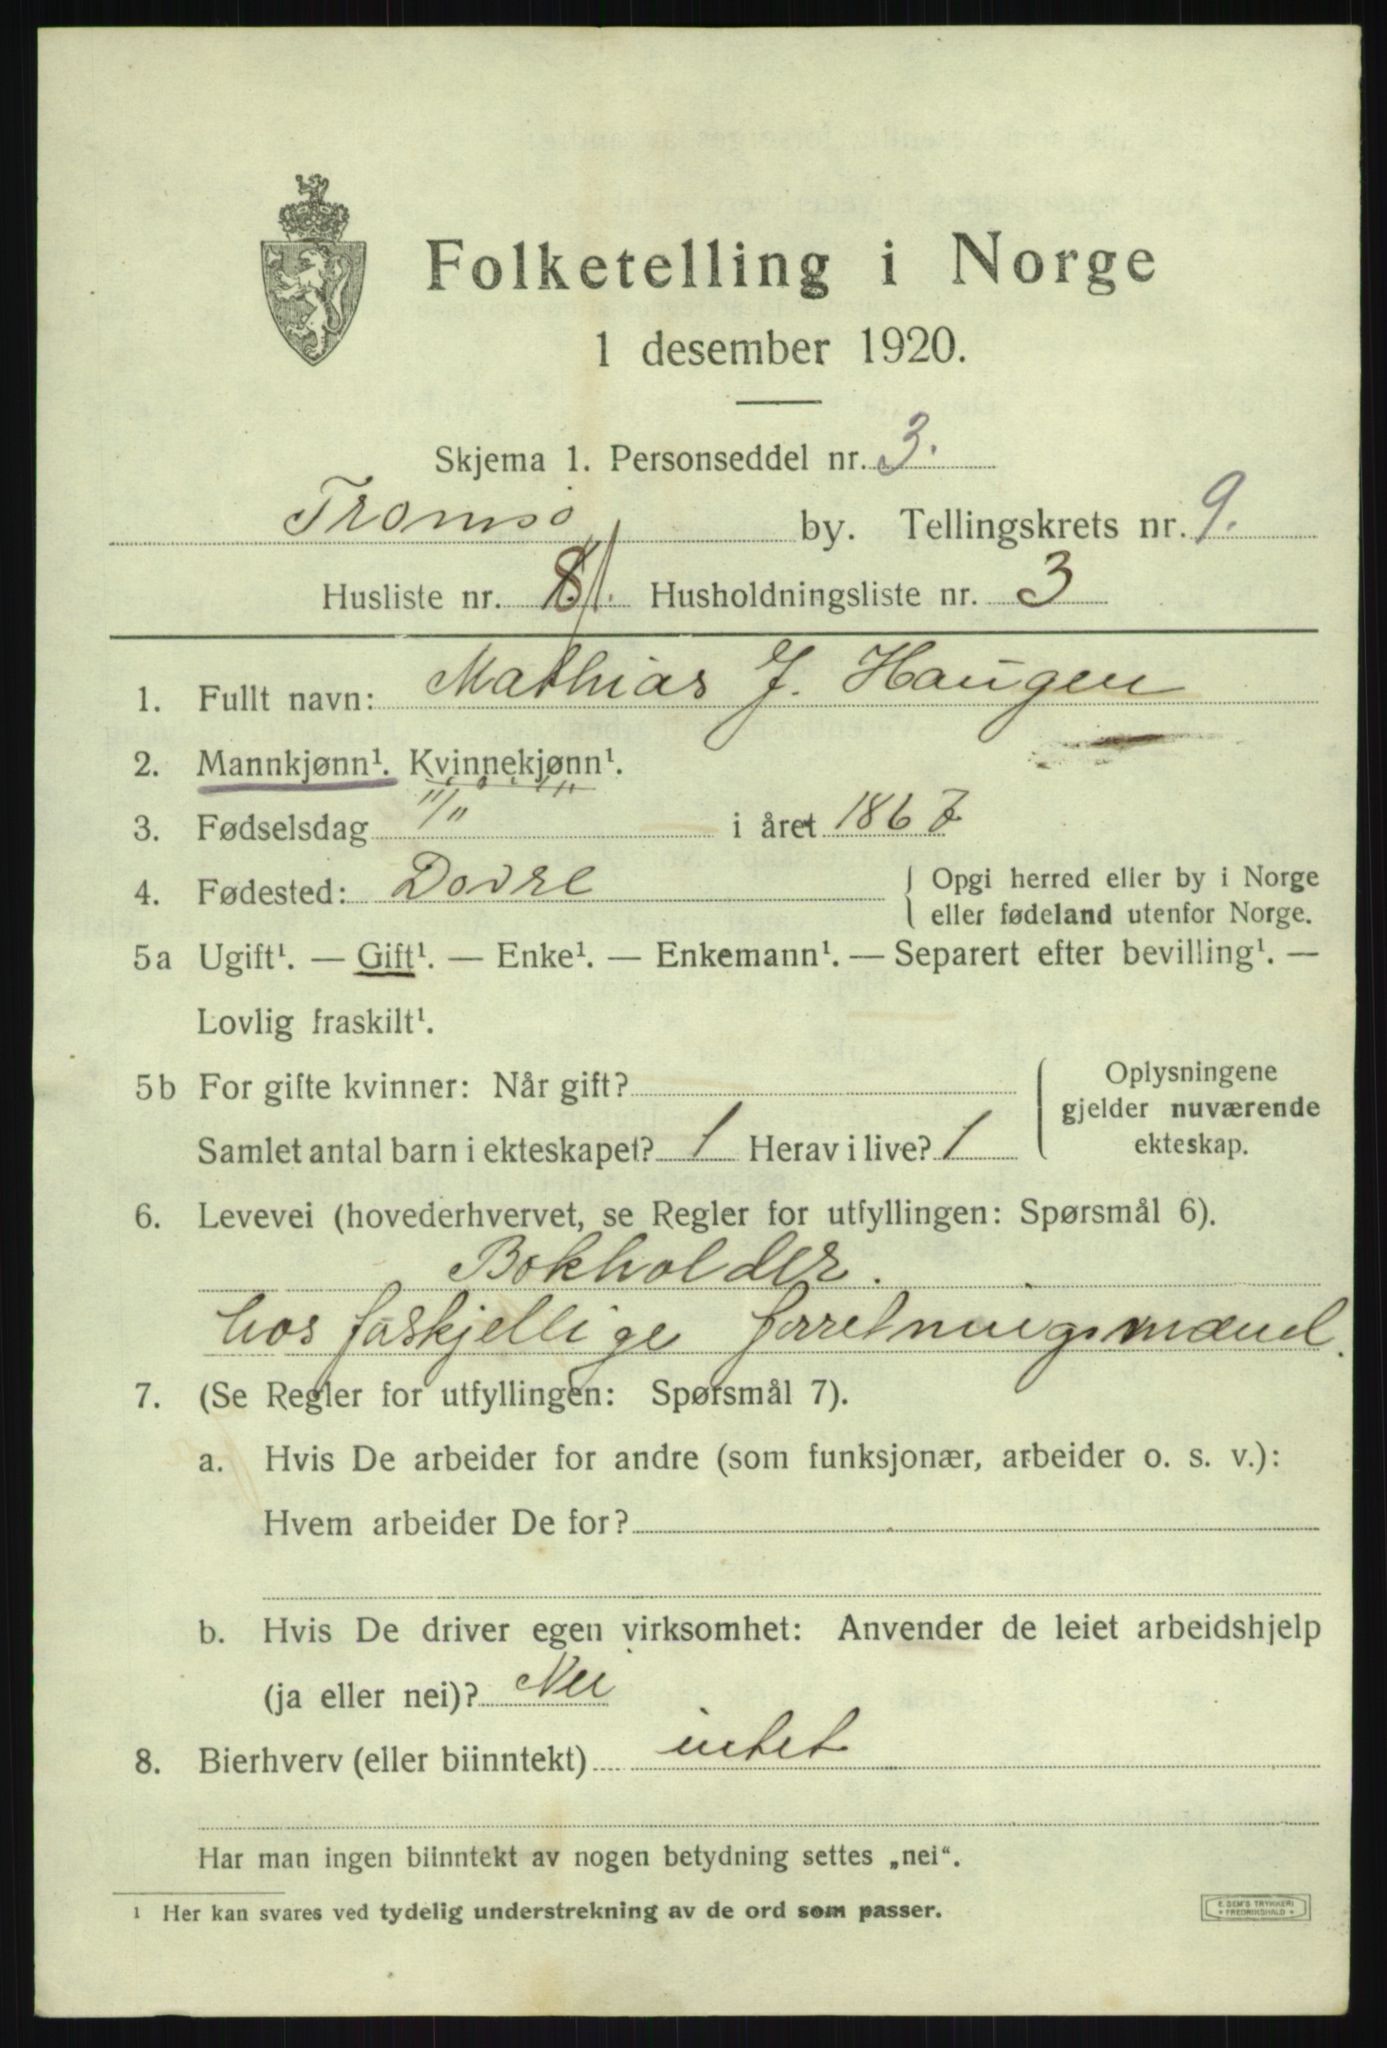 Folketelling i Norge
1 desember 1920.
Skjema 1. Personseddel nr. 3.
Tromsø by. Tellingskrets nr. 9.
Husliste nr. Husholdningsliste nr. 3
1. Fullt navn: Mathias J. Haugen
2. Mannkjønn¹. Kvinnekjønn¹.
3. Fødselsdag 11/11 i året 1867
4. Fødested: Dovre { Opgi herred eller by i Norge
eller fødeland utenfor Norge.
5a Ugift¹. — Gift¹. — Enke¹. — Enkemann¹. — Separert efter bevilling¹. —
Lovlig fraskilt¹.
5b For gifte kvinner: Når gift? { Oplysningene
gjelder nuværende
ekteskap.
Samlet antal barn i ekteskapet? 1 Herav i live? 1
6. Levevei (hovederhvervet, se Regler for utfyllingen: Spørsmål 6).
Bokholder.
hos forskjellige forretningsmænd.
7. (Se Regler for utfyllingen: Spørsmål 7).
a. Hvis De arbeider for andre (som funksjonær, arbeider o. s. v.):
Hvem arbeider De for?
b. Hvis De driver egen virksomhet: Anvender de leiet arbeidshjelp
(ja eller nei)? Nei
8. Bierhverv (eller biinntekt) intet
Har man ingen biinntekt av nogen betydning settes „nei“.
1 Her kan svares ved tydelig understrekning av de ord som passer.
E. SEM'S TRYKKERI
* FREDRIKSHALD *